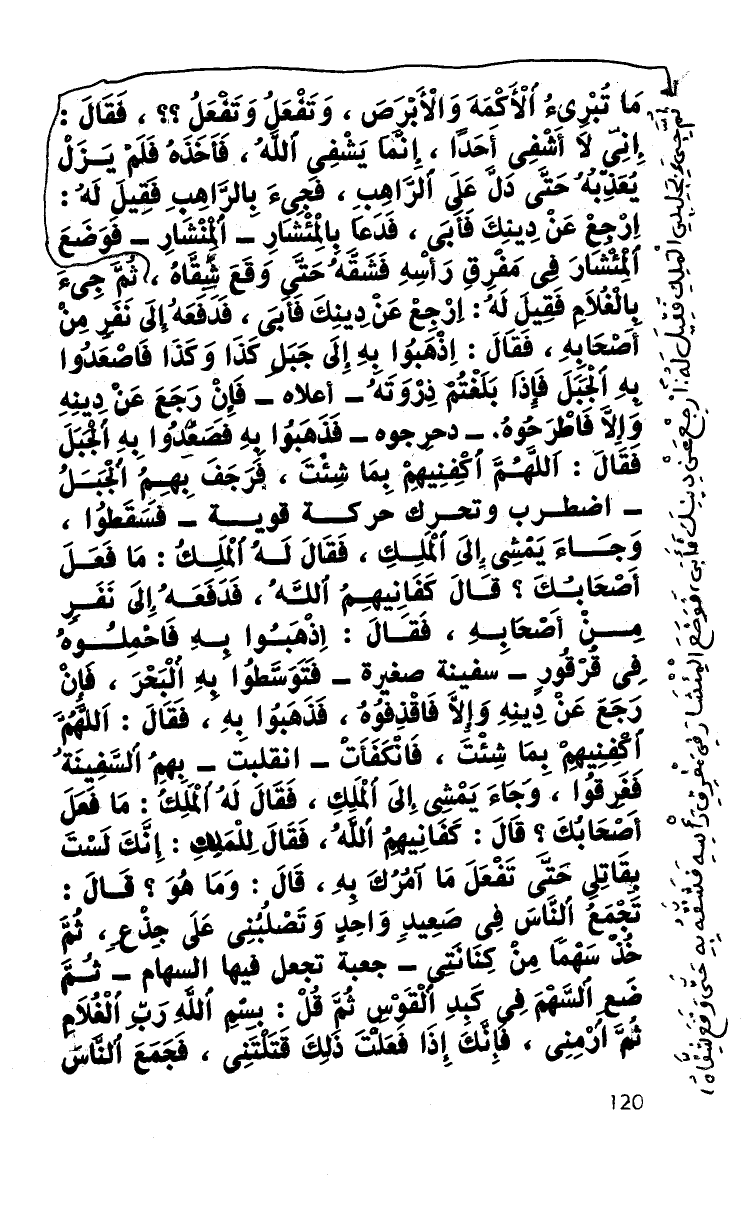 مَا تُبْرِىءُ ٱلْأَكْمَهَ وَالْأَبْرَصَ ، وَتَفْعَلُ وَتَفْعَلُ ؟؟ ، فَقَالَ :
إِنِّى لَا أَشْفِى أَحَدًا ، إِنَّمَا يَشْفِى ٱللَّهُ ، فَأَخَذَهُ فَلَمْ يَـزَلْ
يُعَذِّبُهُ حَتَّى دَلَّ عَلَى ٱلرَّاهِبِ ، فَجِىءَ بِالرَّاهِبِ فَقِيلَ لَهُ :
اِرْجِعْ عَنْ دِينِكَ فَأَبَى ، فَدَعَا بِالْمِئْشَارِ ــ ٱلْمِنْشَارِ ــ فَوَضَعَ
ٱلْمِنْشَارَ فِى مَفْرِقِ رَأْسِهِ فَشَقَّهُ حَتَّى وَقَعَ شِقَّاهُ ، ثُمَّ جِىءَ
بِالْغُلَامِ فَقِيلَ لَهُ : اِرْجِعْ عَنْ دِينِكَ فَأَبَى ، فَدَفَعَهُ إِلَى نَفَرٍ مِنْ
أَصْحَابِهِ ، فَقَالَ : اِذْهَبُوا بِهِ إِلَى جَبَلِ كَذَا وَكَذَا فَاصْعَدُوا
بِهِ ٱلْجَبَلَ فَإِذَا بَلَغْتُمْ ذِرْوَتَهُ ــ أعلاه ــ فَإِنْ رَجَعَ عَنْ دِينِهِ
وَإِلَّا فَاطْرَحُوهُ. ــ دحرجوه ــ فَذَهَبُوا بِهِ فَصَعَّدُوا بِهِ ٱلْجَبَلَ
فَقَالَ : ٱللَّهُمَّ ٱكْفِنِيهِمْ بِمَا شِئْتَ ، فَرَجَفَ بِهِمُ ٱلْجَبَـلُ
ــ اضطـرب وتحـرك حركـــة قويـــة ــ فَسَقَطُوا ،
وَجَـــاءَ يَمْشِى إِلَى ٱلْمَلِـكِ ، فَقَالَ لَـهُ ٱلْمَلِـكُ : مَا فَعَـلَ
أَصْحَابُـكَ ؟ قَـالَ كَفَانِيهِـمُ ٱللَّـهُ ، فَدَفَعَـهُ إِلَى نَفَـرٍ
مِـــنْ أَصْحَابِـهِ ، فَقَـالَ : اِذْهَبُـوا بِـهِ فَاحْمِلُـوهُ
فِى قُرْقُورٍ ــ سفينة صغيرة ــ فَتَوَسَّطُوا بِهِ ٱلْبَحْرَ ، فَإِنْ
رَجَعَ عَنْ دِينِهِ وَإِلَّا فَاقْذِفُوهُ ، فَذَهَبُوا بِهِ ، فَقَالَ : ٱللَّهُمَّ
ٱكْفِنِيهِمْ بِمَا شِئْتَ ، فَانْكَفَأَتْ ــ انقلبت ــ بِهِمُ ٱلسَّفِينَةُ
فَغَرِقُوا ، وَجَاءَ يَمْشِى إِلَى ٱلْمَلِكِ ، فَقَالَ لَهُ ٱلْمَلِكُ : مَا فَعَلَ
أَصْحَابُكَ ؟ قَالَ : كَفَانِيهُمُ ٱللَّهُ ، فَقَالَ لِلْمَلِكِ : إِنَّكَ لَسْتَ
بِقَاتِلِى حَتَّى تَفْعَلَ مَا آمُرُكَ بِهِ ، قَالَ : وَمَا هُوَ ؟ قَـالَ :
تَجْمَعُ ٱلنَّاسَ فِى صَعِيدٍ وَاحِدٍ وَتَصْلُبُنِى عَلَى جِذْعٍ ، ثُمَّ
خُذْ سَهْمًا مِنْ كِنَانَتِى ــ جعبة تجعل فيها السهام ــ ثُـمَّ
ضَعِ ٱلسَّهْمَ فِى كَبِدِ ٱلْقَوْسِ ثُمَّ قُلْ : بِسْمِ ٱللَّهِ رَبِّ ٱلْغُلَامِ
ثُمَّ ٱرْمِنِى ، فَإِنَّكَ إِذَا فَعَلْتَ ذَلِكَ قَتَلْتَنِى ، فَجَمَعَ ٱلنَّاسَ
120
ثُمَّ جِىءَ بِجَلِيسِ الْمَلِكِ فَقِيلَ لَهُ: اِرْجِعْ عَنْ دِينِكَ فَأَبَى، فَوَضَعَ الْمِئْشَارَ فِى مَفْرِقِ رَأْسِهِ فَشَقَّهُ بِهِ حَتَّى وَقَعَ شِقَّاهُ